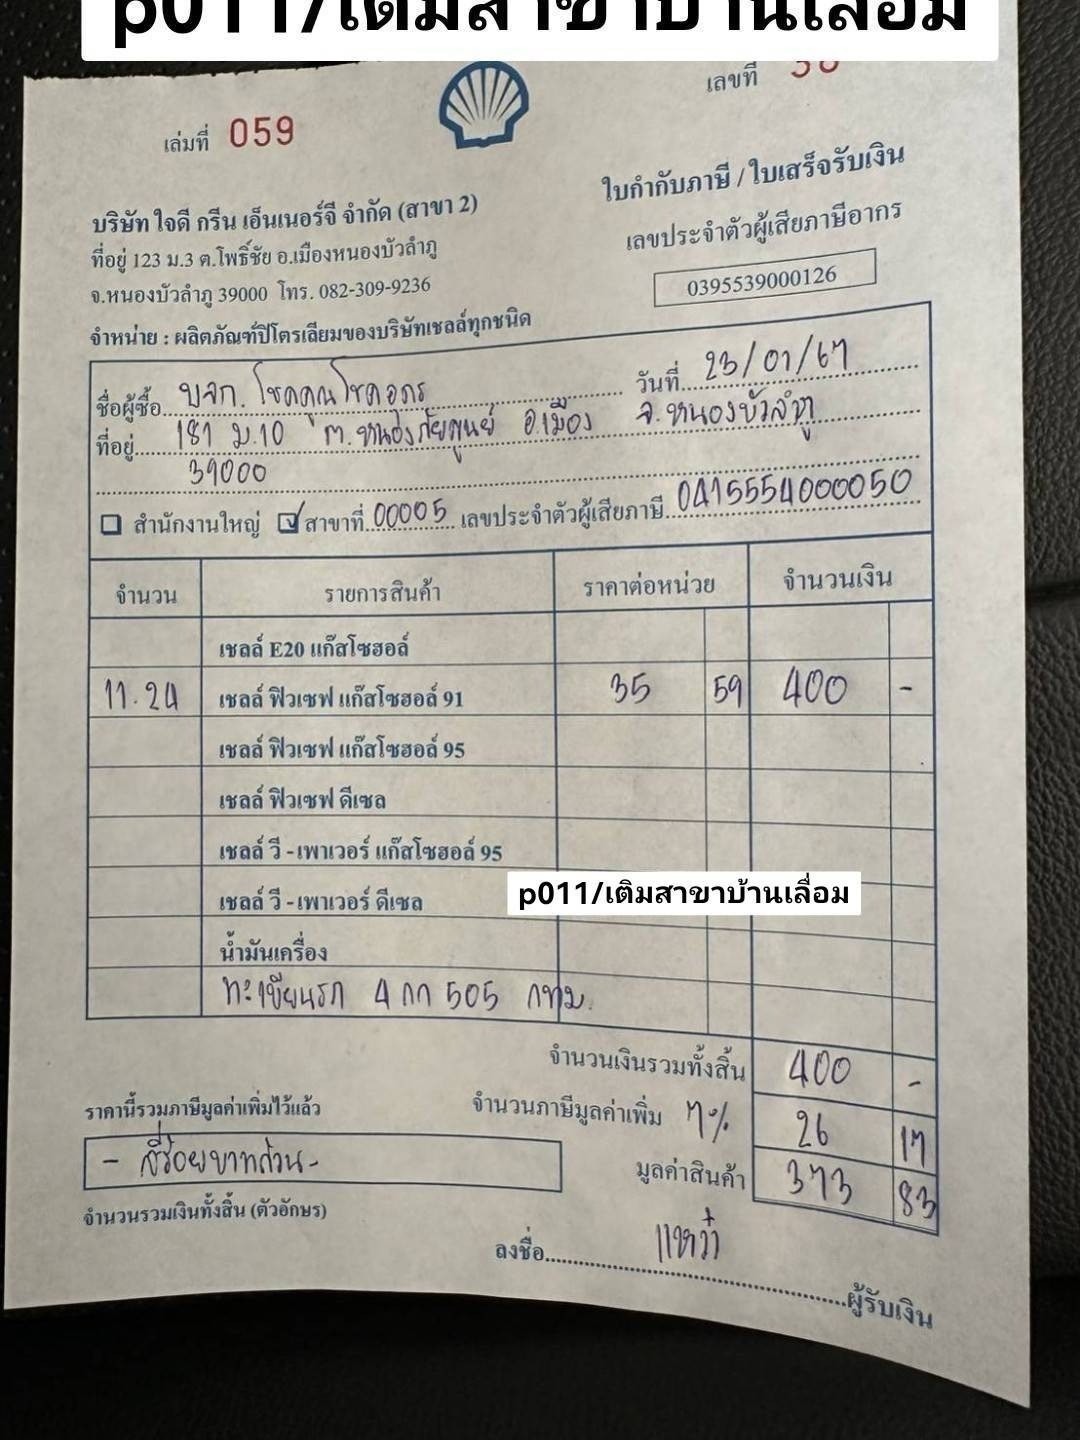 p011/เติมสาขาบ้านเลื่อม
เล่มที่ 059
เลขที่
บริษัท ใจดี กรีน เอ็นเนอร์จี จำกัด (สาขา 2)
ที่อยู่ 123 ม.3 ต.โพธิ์ชัย อ.เมืองหนองบัวลำภู
จ.หนองบัวลำภู 39000 โทร. 082-309-9236
จำหน่าย : ผลิตภัณฑ์ปิโตรเลียมของบริษัทเชลล์ทุกชนิด
ใบกำกับภาษี / ใบเสร็จรับเงิน
เลขประจำตัวผู้เสียภาษีอากร
0395539000126
ชื่อผู้ซื้อ บจก. โชคคูณโชคอกร วันที่ 23/01/67
ที่อยู่ 181 ม.10 ต.หนองภัยศูนย์ อ.เมือง จ.หนองบัวลำภู
39000
สำนักงานใหญ่ สาขาที่ 00005 เลขประจำตัวผู้เสียภาษี 0415554000050
จำนวน รายการสินค้า ราคาต่อหน่วย จำนวนเงิน
เชลล์ E20 แก๊สโซฮอล์
11.24 เชลล์ ฟิวเซฟ แก๊สโซฮอล์ 91 35 59 400 -
เชลล์ ฟิวเซฟ แก๊สโซฮอล์ 95
เชลล์ ฟิวเซฟ ดีเซล
เชลล์ วี - เพาเวอร์ แก๊สโซฮอล์ 95
เชลล์ วี - เพาเวอร์ ดีเซล
p011/เติมสาขาบ้านเลื่อม
น้ำมันเครื่อง
ทะเบียนรถ 4 กก 505 กทม.
จำนวนเงินรวมทั้งสิ้น 400 -
ราคานี้รวมภาษีมูลค่าเพิ่มไว้แล้ว
จำนวนภาษีมูลค่าเพิ่ม 7% 26 17
- สี่ร้อยบาทถ้วน -
มูลค่าสินค้า 373 83
จำนวนรวมเงินทั้งสิ้น (ตัวอักษร)
ลงชื่อ แหว๋ว ผู้รับเงิน